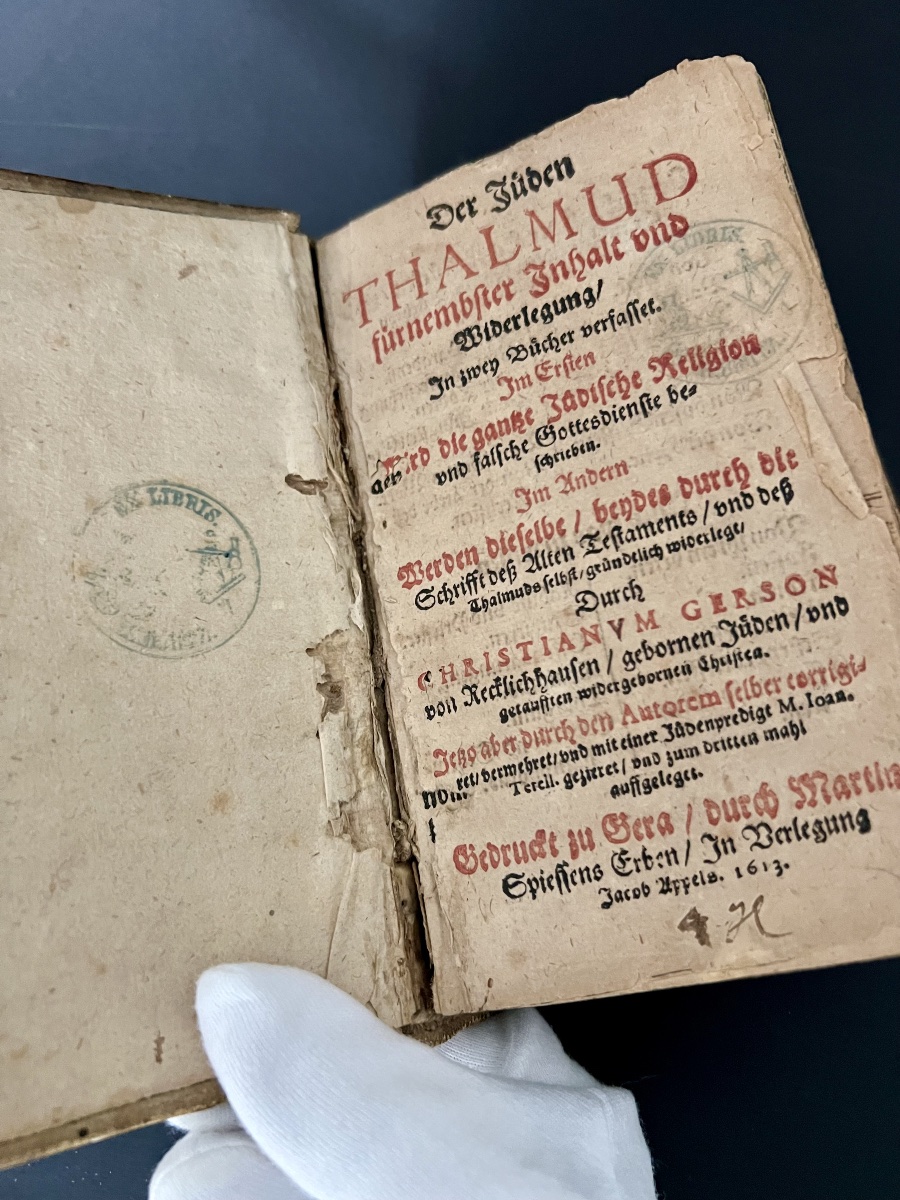 EX LIBRIS.
Der Jüden
THALMUD
fürnembster Inhalt vnd
Widerlegung/
In zwey Bücher verfasset.
Im Ersten
Wird die gantze Jüdische Religion
vnd falsche Gottesdienste be-
schrieben.
Im Andern
Werden dieselbe / beydes durch die
Schrifft deß Alten Testaments / vnd deß
Thalmuds selbst / gründtlich widerlege/
Durch
CHRISTIANVM GERSON
von Recklichhausen / gebornen Jüden / vnd
getaufften widergebornen Christen.
Jetzo aber durch den Autorem selber corrigi-
ret / vermehret / vnd mit einer Jüdenpredigt M. Ioan.
Terell. gezieret / vnd zum dritten mahl
auffgeleget.
Gedruckt zu Gera / durch Martin
Spiessens Erben / In Verlegung
Jacob Appels. 1613.